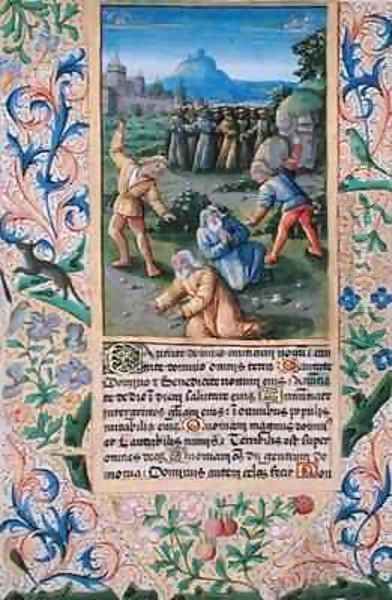 Cantate domino canticum novu can
tate domino omnis terra Cantate
Domino et benedicite nomini eius annūcia
te de die ī diem salutare eius Annunciate
inter gentes gloriam eius in omnibus populis
mirabilia eius Quoniam magnus domin⁹
et laudabilis nimis Terribilis est super
omnes deos Quoniam oēs dii gentium de
monia Dominus autem celos fecit Con